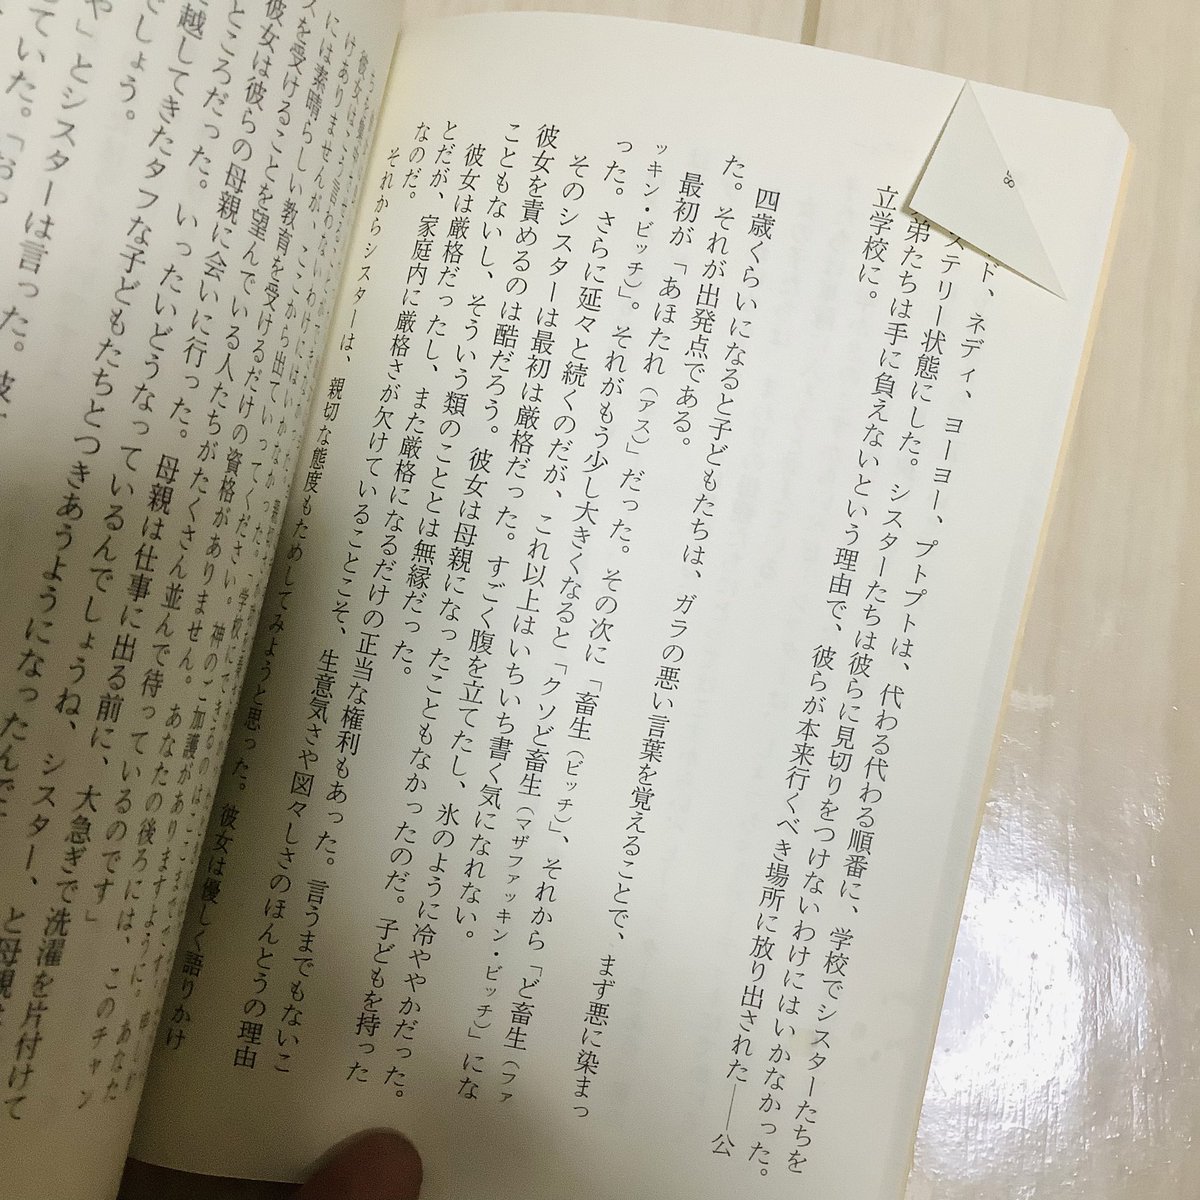 ド、ネディ、ヨーヨー、プトプトは、代わる代わる順番に、学校でシスターたちを
ステリー状態にした。シスターたちは彼らに見切りをつけないわけにはいかなかった。
弟たちは手に負えないという理由で、彼らが本来行くべき場所に放り出された――公
立学校に。
四歳くらいになると子どもたちは、ガラの悪い言葉を覚えることで、まず悪に染まっ
た。それが出発点である。
最初が「あほたれ（アス）」だった。その次に「畜生（ビッチ）」、それから「ど畜生（ファ
ッキン・ビッチ）」。それがもう少し大きくなると「クソど畜生（マザファッキン・ビッチ）」にな
った。さらに延々と続くのだが、これ以上はいちいち書く気になれない。
そのシスターは最初は厳格だった。すごく腹を立てたし、氷のように冷ややかだった。
彼女を責めるのは酷だろう。彼女は母親になったこともなかったのだ。子どもを持った
こともないし、そういう類のこととは無縁だった。
彼女は厳格だったし、また厳格になるだけの正当な権利もあった。言うまでもないこ
とだが、家庭内に厳格さが欠けていることこそ、生意気さや図々しさのほんとうの理由
なのだ。
それからシスターは、親切な態度もためしてみようと思った。彼女は優しく語りかけ
には素晴らしい教育を受けるだけの資格がありません。神のご加護がありますように。
スを受けることを望んでいる人たちがたくさん並んで待っているのです」
彼女は彼らの母親に会いに行った。母親は仕事に出る前に、大急ぎで洗濯を片付けて
ところだった。いったいどうなっているんでしょうね、シスター、と母親は
越してきたタフな子どもたちとつきあうようになったんで
でしょう。
や」とシスターは言った。
ていた。「お
8